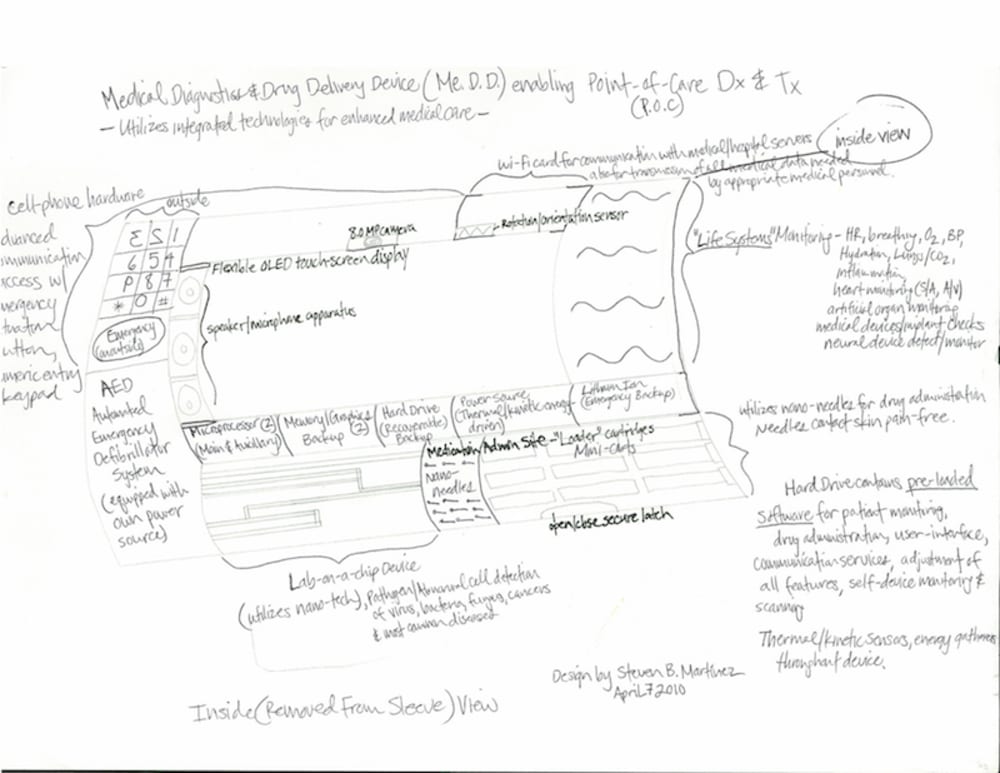 Medical Diagnostics & Drug Delivery Device (Me.D.D.) enabling Point-of-Care Dx & Tx
(P.O.C)
— Utilizes integrated technologies for enhanced medical care —
inside view
wi-fi card for communication with medical/hospital servers
also for transmission of all medical data needed
by appropriate medical personnel.
cell-phone hardware
outside
dvanced
mmunication
ccess w/
mergency
button,
umeric entry
keypad
3 2 1
6 5 4
9 8 7
* 0 #
Emergency
(on outside)
8.0 MP camera
Rotation/orientation sensor
Flexible OLED touch-screen display
speaker/microphone apparatus
"Life Systems" Monitoring - HR, breathing, O2, BP,
Hydration, Lungs/CO2,
inflammation,
heart monitoring (S/A, A/V)
artificial organ monitoring
medical devices/implant checks
neural device detect/monitor
AED
Automated
Emergency
Defibrillator
System
(equipped with
own power
source)
Microprocessor (2)
(Main & Auxiliary)
Memory/Graphics
Backup (2)
Hard Drive
(Recoverable)
Backup
Power Source
(Thermal/kinetic energy
driven)
Lithium Ion
(Emergency Backup)
Medication Admin Site - "Loader" cartridges
Mini-Carts
Nano-
needles
open/close secure latch
utilizes nano-needles for drug administration
Needles contact skin pain-free.
Hard Drive contains pre-loaded
software for patient monitoring,
drug administration, user-interface,
communication services, adjustment of
all features, self-device monitoring &
scanning
Thermal/kinetic sensors, energy gatherers
throughout device.
Lab-on-a-chip Device
(utilizes nano-tech), Pathogen/Abnormal cell detection
of virus, bacteria, fungus, cancers
& most common diseases
Design by Steven B. Martinez
April 7 2010
Inside (Removed From Sleeve) View